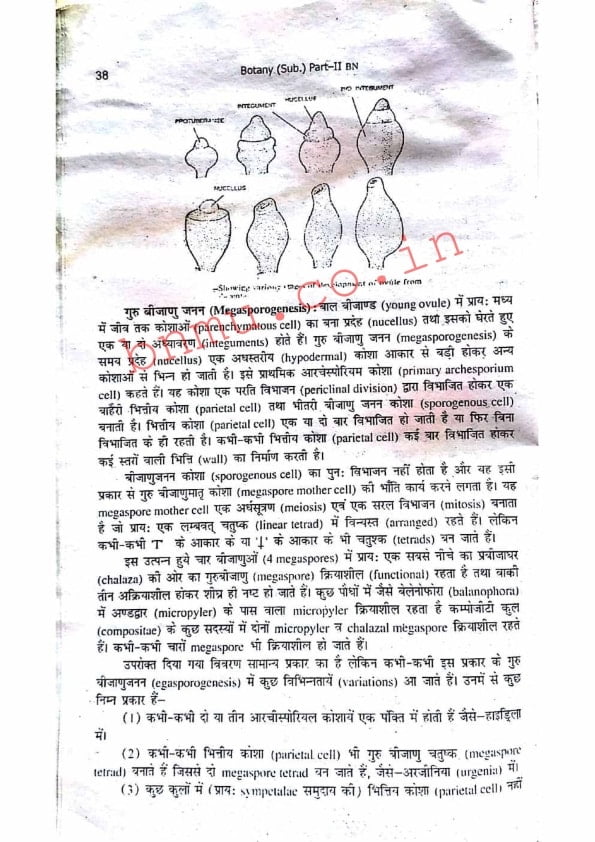 38
Botany (Sub.) Part–II BN
INTEGUMENT
NUCELLUS
NUCELLUS
—Showing various of development of ovule from
गुरु बीजाणु जनन (Megasporogenesis) : बाल बीजाण्ड (young ovule) में प्रायः मध्य
में जीव तक कोशाओं (parenchymatous cell) का बना प्रदेह (nucellus) तथा इसको घेरते हुए
एक या दो अध्यावरण (integuments) होते हैं। गुरु बीजाणु जनन (megasporogenesis) के
समय प्रदेह (nucellus) एक अधस्तरीय (hypodermal) कोशा आकार से बड़ी होकर अन्य
कोशाओं से भिन्न हो जाती है। इसे प्राथमिक आरचेस्पोरियम कोशा (primary archesporium
cell) कहते हैं। यह कोशा एक परति विभाजन (periclinal division) द्वारा विभाजित होकर एक
बाहरी भित्तीय कोशा (parietal cell) तथा भीतरी बीजाणु जनन कोशा (sporogenous cell)
बनाती है। भित्तीय कोशा (parietal cell) एक या दो बार विभाजित हो जाती है या फिर बिना
विभाजित के ही रहती है। कभी-कभी भित्तीय कोशा (parietal cell) कई बार विभाजित होकर
कई स्तरों वाली भित्ति (wall) का निर्माण करती है।
बीजाणुजनन कोशा (sporogenous cell) का पुनः विभाजन नहीं होता है और यह इसी
प्रकार से गुरु बीजाणुमातृ कोशा (megaspore mother cell) की भाँति कार्य करने लगता है। यह
megaspore mother cell एक अर्धसूत्रण (meiosis) एवं एक सरल विभाजन (mitosis) बनाता
है जो प्रायः एक लम्बवत् चतुष्क (linear tetrad) में विन्यस्त (arranged) रहते हैं। लेकिन
कभी-कभी 'T' के आकार के या के आकार के भी चतुश्क (tetrads) बन जाते हैं।
इस उत्पन्न हुये चार बीजाणुओं (4 megaspores) में प्रायः एक सबसे नीचे का
(chalaza) की ओर का गुरुबीजाणु (megaspore) क्रियाशील (functional) रहता है तथा बाकी
तीन अक्रियाशील होकर शीघ्र ही नष्ट हो जाते हैं। कुछ पौधों में जैसे बेलेनोफोरा (balanophora)
में अण्डद्वार (micropyler) के पास वाला micropyler क्रियाशील रहता है कम्पोजीटी कुल
(compositae) के कुछ सदस्यों में दोनों micropyler व chalazal megaspore क्रियाशील रहते
हैं। कभी-कभी चारों megaspore भी क्रियाशील हो जाते हैं।
उपरोक्त दिया गया विवरण सामान्य प्रकार का है लेकिन कभी-कभी इस प्रकार के गुरु
बीजाणुजनन (egasporogenesis) में कुछ विभिन्नतायें (variations) आ जाते हैं। उनमें से कुछ
निम्न प्रकार हैं–
(1) कभी-कभी दो या तीन आरचीस्पोरियल कोशायें एक पंक्ति में होती हैं जैसे–हाइड्रिला
में।
(2) कभी-कभी भित्तीय कोशा (parietal cell) भी गुरु बीजाणु चतुष्क (megaspore
tetrad) बनाते हैं जिससे दो megaspore tetrad बन जाते हैं, जैसे–अरजीनिया (urgenia) में।
(3) कुछ कुलों में (प्रायः sympetalae समुदाय की) भित्तिय कोशा (parietal cell) नहीं
bnmu.co.in